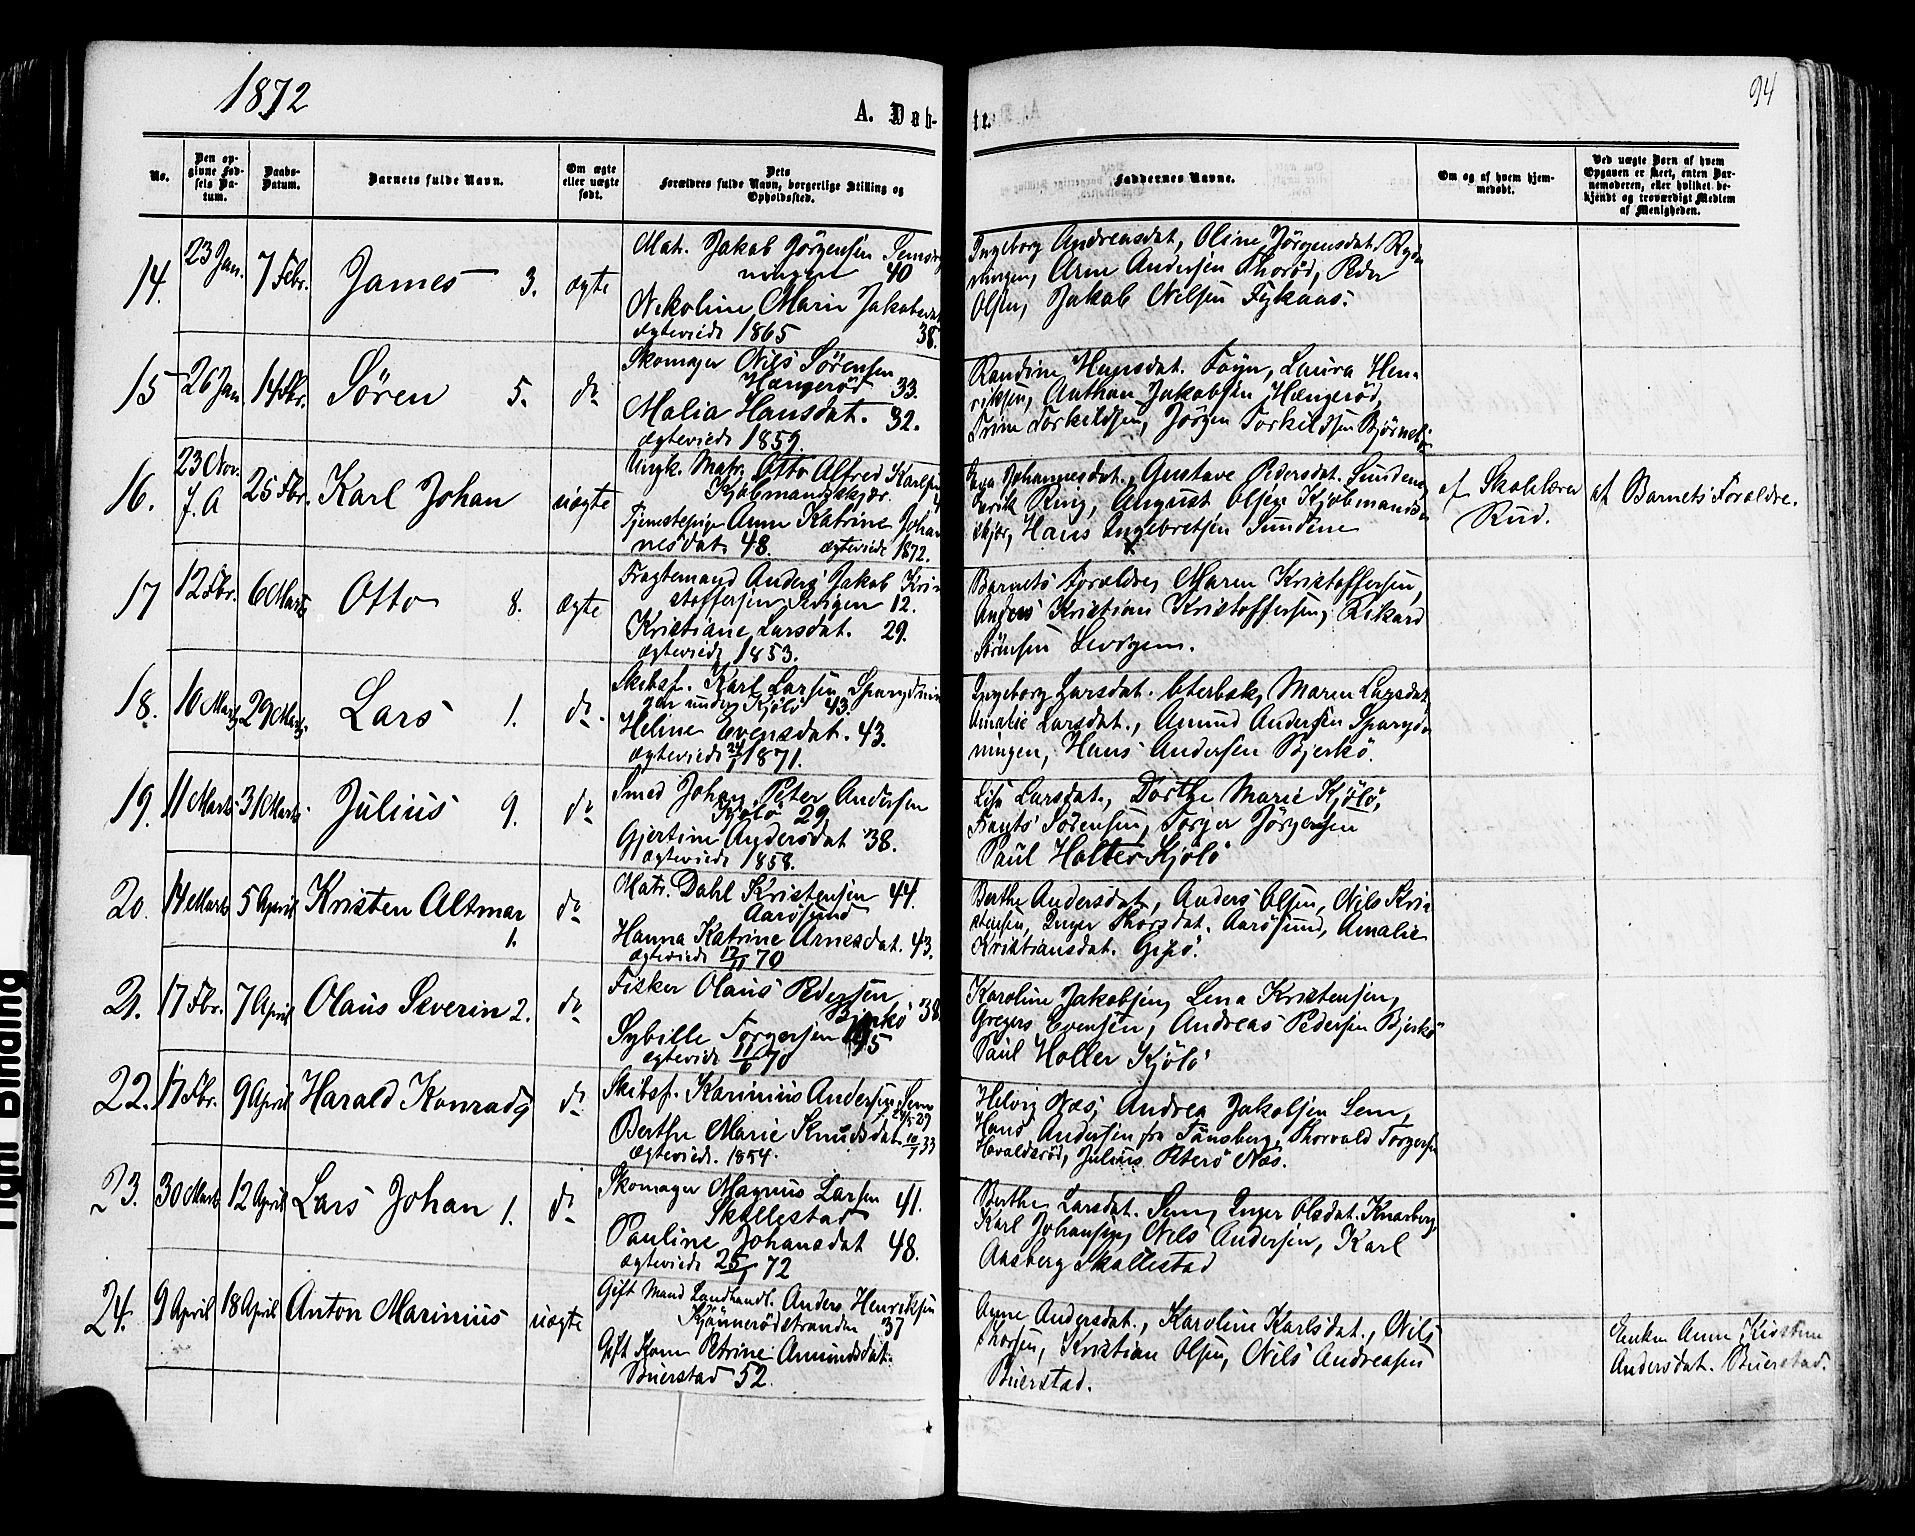 1872
94
A. Døb-
te.
No.
Den op-
givne Fød-
sels Da-
tum.
Daabs-
Datum.
Barnets fulde Navn.
Om ægte
eller uægte
født.
Dets
Forældres fulde Navn, borgerlige Stilling og
Opholdssted.
Faddernes Navne.
Om og af hvem hjem-
medøbt.
Ved uægte Børn af hvem
Opgaven er skeet, enten Bar-
nemoderen, eller hvilket be-
kjendt og troværdigt Medlem
af Menigheden.
14.
23 Jan.
7 Febr.
James 3.
ægte
Mat. Jakob Jörgensen
ningen 40
Nikoline Marie
Ægteviede 1865 38.
Ingeborg Andreasdat, Oline Jörgensdat.
ningen, Arne Andersen Thoröd, Peder
Olsen, Jakob Nilsen
15
26 Jan
14 Fbr.
Sören 5.
do
Skomager Nils Sörensen
Hængeröd 33.
Malia Hansdat. 32.
Ægteviede 1859.
Randine Hansdat. Föyn, Laura Hen-
riksen, Anthon Jakobsen Hængeröd,
Trine Torkildsen, Jörgen Torkildsen
16.
23 Nov.
f. A
25 Fbr.
Karl Johan
uægte
Ungk. Matr. Otto Alfred Karlsen
Kjöbmandskjær.
Tjenestepige Anne Katrine Johan
nesdat. 48. Ægteviede 1872.
Johannesdat., Gustave Pedersdat. Sundene,
Ring, August Olsen Kjöbmands-
skjær, Hans Ingebretsen Sundene
af Skolelærer
Rud.
af Barnets Forældre.
17
12 Fbr.
6 Marts
Otto 8.
ægte
Fragtemand Anders Jakob Kri
stoffersen 12.
Kristiane Larsdat. 29.
Ægteviede 1853.
Barnets Forældre, Maren Kristoffersen,
Anders Kristian Kristoffersen, Rikard
Sörensen
18.
10 Marts
29 Marts
Lars 1.
do.
Skibsf. Karl Larsen
under Kjölö 43.
Heline Evensdat. 43.
Ægteviede 1871.
Ingeborg Larsdat. Maren Larsdat,
Amalie Larsdat., Amund Andersen
ningen, Hans Andersen Bjerkö.
19.
11 Marts
31 Marts
Julius 9.
do
Smed Johan Peter Andersen
Kjölö 29
Gjertine Andersdat 38.
Ægteviede 1858.
Lise Larsdat., Dorthe Marie Kjölö,
Frants Sörensen, Torger Jörgensen
Paul Holter Kjölö
20.
14 Marts
5 April
Kristen Altmar
1.
do
Matr. Dahl Kristensen 44.
Aarösund
Hanna Katrine Arnesdat. 43.
Ægteviede 70
Berthe Andersdat, Anders Olsen, Nils Kri-
stensen, Inger Thorsdat. Aarösund, Amalie
Kristiansdat. Gipö.
21.
17 Fbr.
7 April
Olaus Severin 2.
do
Fisker Olaus Pedersen,
Bjerkö 38
Sybille Torgersen 45
Ægteviede 11/6 70
Karoline Jakobsen, Lena Kristensen,
Gregers Evensen, Andreas Pedersen Bjerkö
Paul Holler Kjölö
22.
17 Fbr.
9 April
Harald Konrad 9
do
Skibsf. Karinius Andersen Sem
29
Berthe Marie Knudsdat. 33
Ægteviede. 1854.
Helvig Næs, Andrea Jakobsen Sem,
Hans Andersen fra Tönsberg, Thorvald Torgersen
Havaldsröd, Julius Peters Næs.
23.
30 Marts
12 April
Lars Johan 1.
do
Skomager Magnus Larsen 41.
Skallestad
Pauline Johansdat 48.
Ægteviede 25/1 72
Berthe Larsdat. Sem, Inger Olsdat. Knarberg,
Karl Johansen, Nils Andersen, Karl
Aasberg Skallestad
24.
9 April
18 April
Anton Marinius
uægte
Gift Mand Landhandl. Anders Henriksen
Kjönnerödstranden 37
Gift Kone Petrine Amundsdat.
Buerstad 52.
Anne Andersdat., Karoline Karlsdat., Nils
Thorsen, Kristian Olsen, Nils Andreasen
Buerstad.
Enken Anne Kirstine
Andersdat. Buerstad.